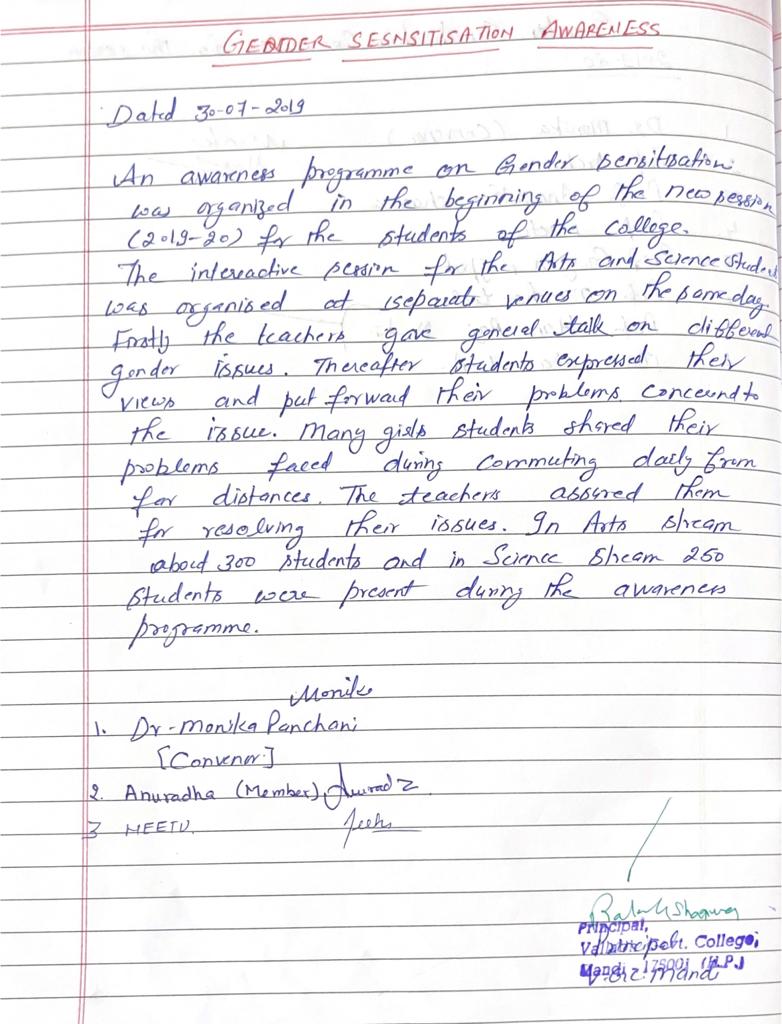 GENDER SESNSITISATION AWARENESS
Dated 30-07-2019
An awareness programme on Gender Sensitisation
was organized in the beginning of the new session
(2019-20) for the students of the college.
The intereactive session for the Arts and Science Student
was organised at separate venues on the same day.
Firstly the teachers gave general talk on different
gender issues. Thereafter students expressed their
views and put forward their problems concerned to
the issue. Many girls students shared their
problems faced during commuting daily from
far distances. The teachers assured them
for resolving their issues. In Arts stream
about 300 students and in Science Stream 250
students were present during the awareness
programme.
Monika
1. Dr. Monika Panchani
[Convenor]
2. Anuradha (Member)
3 NEETU
Principal,
College,
Mandi 175001 (H.P.)